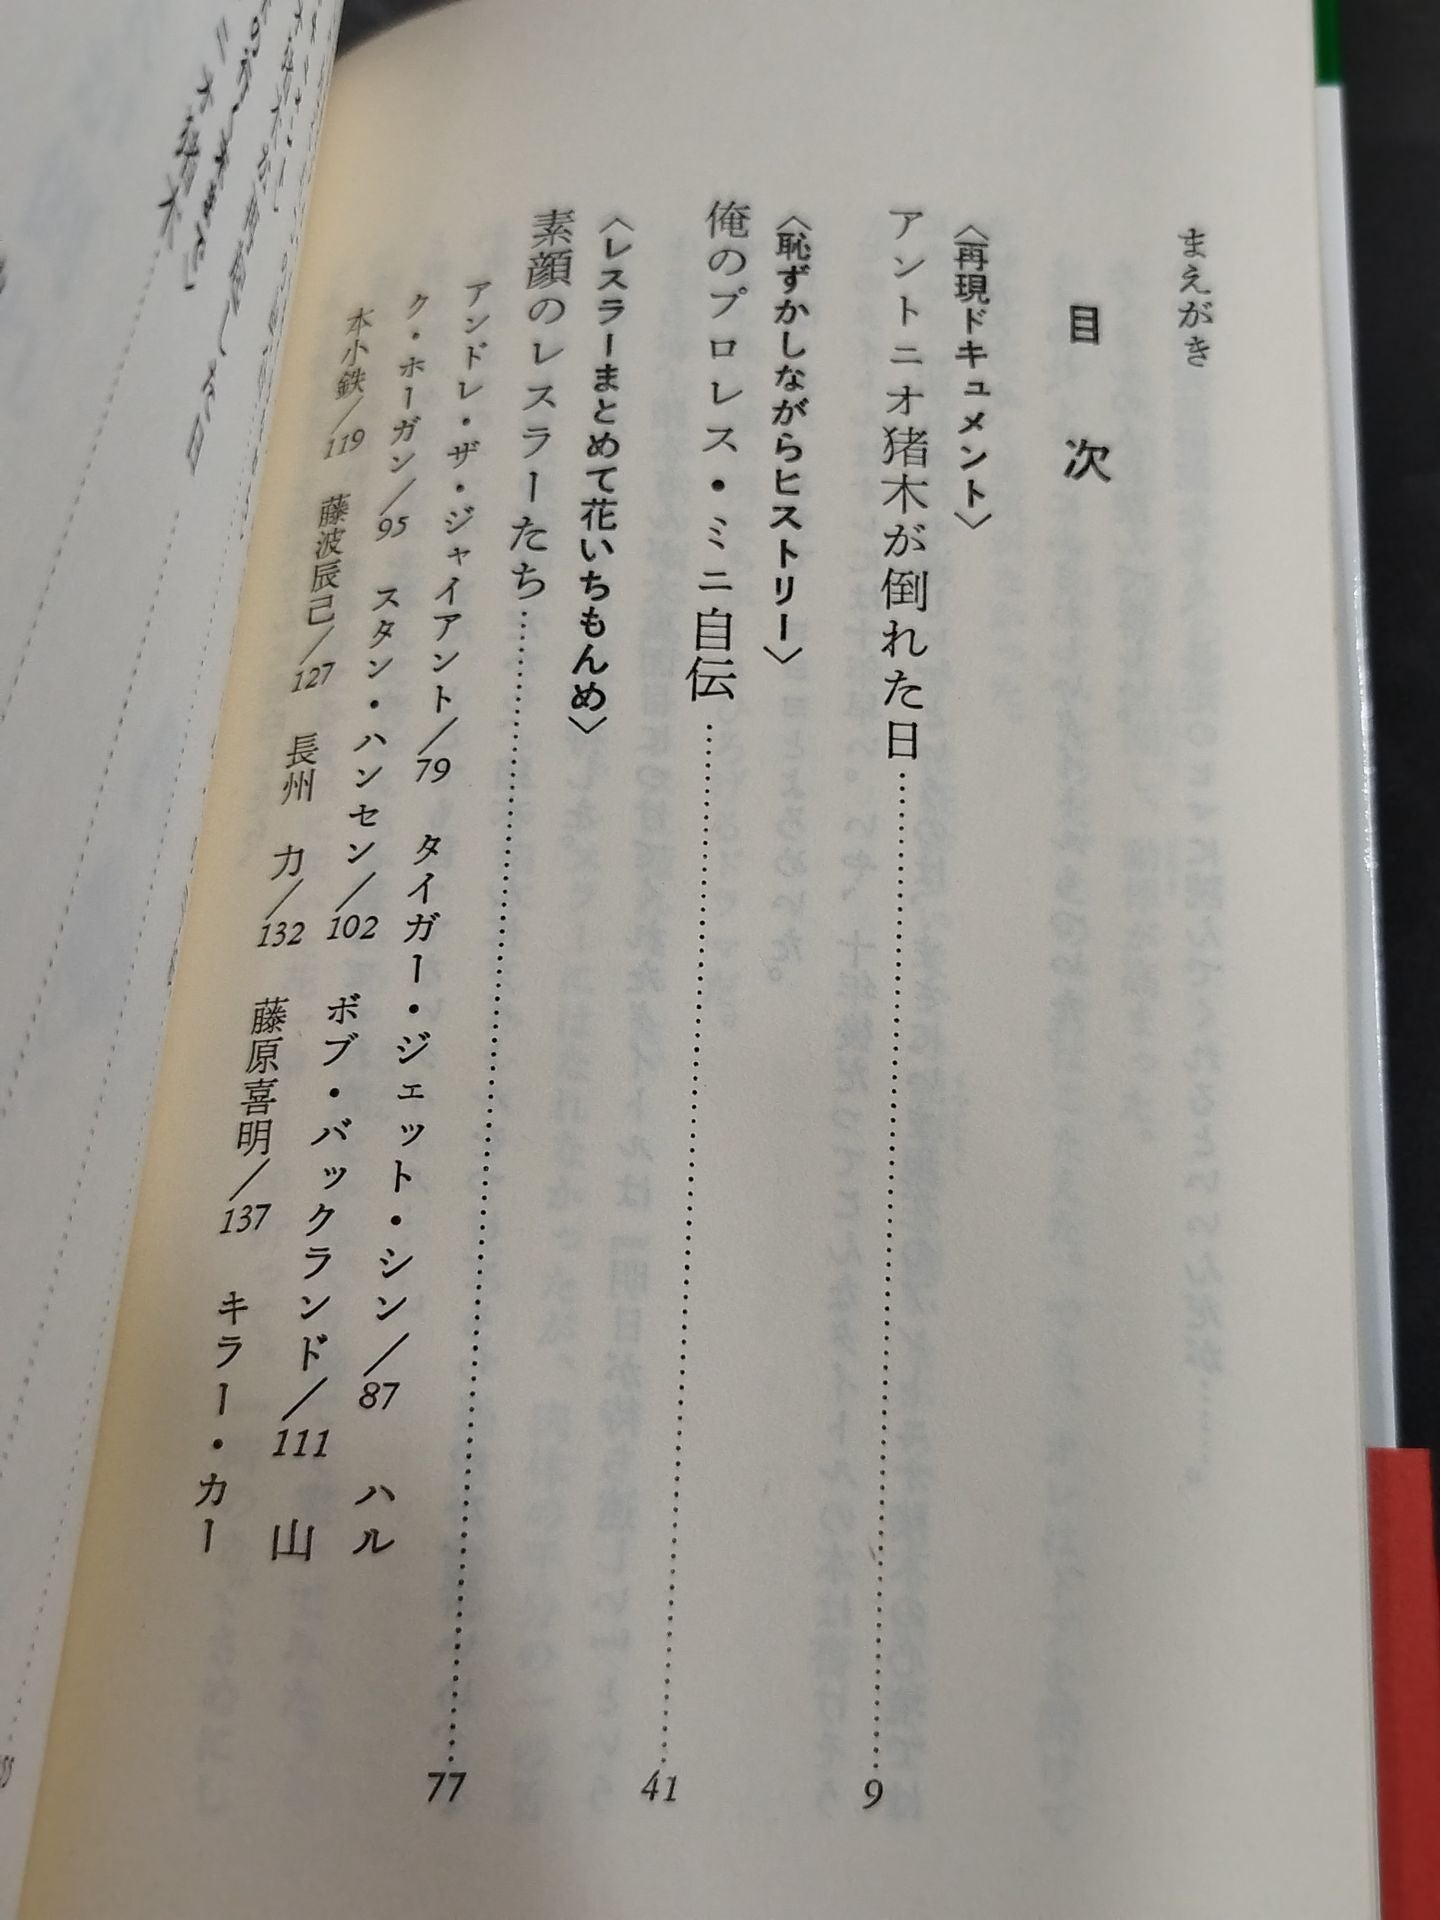 まえがき
目次
〈再現ドキュメント〉
アントニオ猪木が倒れた日……9
〈恥ずかしながらヒストリー〉
俺のプロレス・ミニ自伝……41
〈レスラーまとめて花いちもんめ〉
素顔のレスラーたち……77
アンドレ・ザ・ジャイアント/79 タイガー・ジェット・シン/87 ハル
ク・ホーガン/95 スタン・ハンセン/102 ボブ・バックランド/111 山
本小鉄/119 藤波辰己/127 長州 力/132 藤原喜明/137 キラー・カー